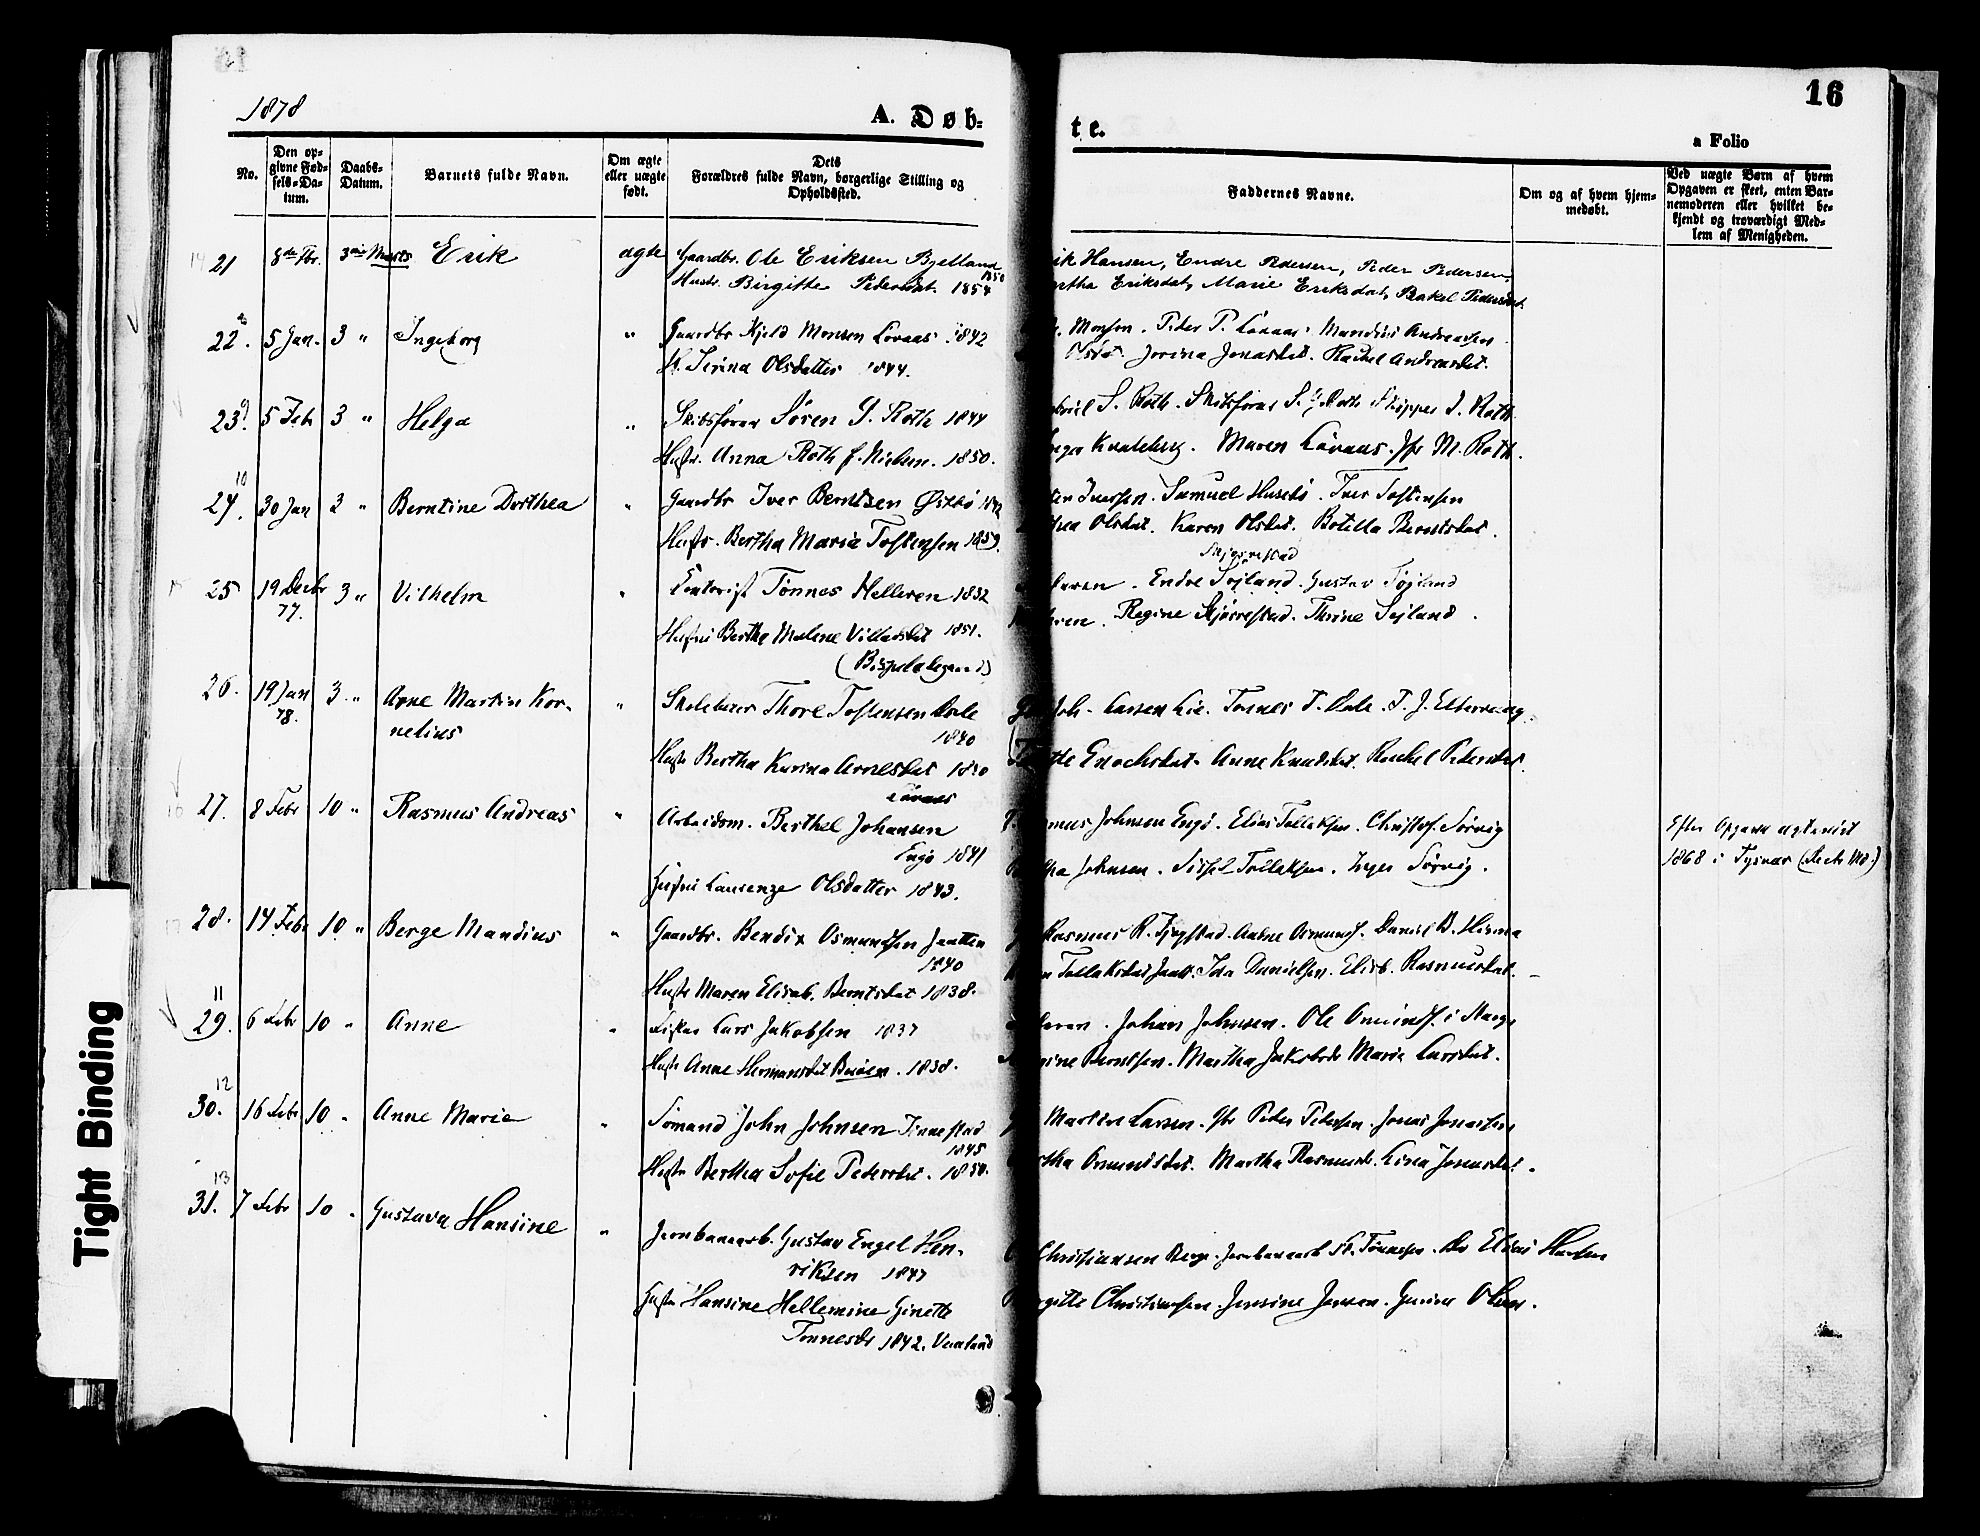 16
1878
A. Døb=
te.
a Folio
No.
Den op=
givne Fød=
sels=Da=
tum.
Daabs=
Datum.
Barnets fulde Navn.
Om ægte
eller uægte
født.
Dets
Forældres fulde Navn, borgerlige Stilling og
Opholdssted.
Faddernes Navne.
Om og af hvem hjem=
medøbt.
Ved uægte Børn af hvem
Opgaven er skeet, enten Bar=
nemoderen eller hvilket be=
kjendt og troværdigt Med=
lem af Menigheden.
21 8de Fbr. 3die Marts Erik ægte Gaardbr. Ole Eriksen Bjelland 1850
Hustr. Birgitte Pedersdat. 1854
rik Hansen, Endre Pedersen, Peder Pedersen,
artha Eriksdat, Marie Eriksdat, Rakel Pedersdat.
8
22. 5 Jan. 3 " Ingeborg " Gaardbr Kjeld Monsen Lovaas 1842
H. Serina Olsdatter 1844.
Monsen. Peder P. Lovaas. Mandius Andreassen
Olsdat. Jorina Jonasdat. Rachel Andreasdat.
9
23. 5 Feb 3 " Helga " Skibsfører Søren S. Roth 1844
Hustr. Anna Roth f. Nielsen. 1850.
briel S. Roth. Skibsfører S. Roth Skipper J. Roth
Inger Kvaleberg. Maren Lovaas. Jfr M. Roth.
10
24. 30 Jan 3 " Berntine Dorthea " Gaardbr Iver Berntsen Østbø
Hustr. Bertha Maria Tostensen 1859.
Iversen. Samuel Husebø. Iver Tostensen
thea Olsdat. Karen Olsdat. Botilla Berntsdat.
25 19 Decbr 77. 3 " Vilhelm " Kontorist Tønnes Helleren 1832
Hustru Bertha Malene Villadsdat 1851.
(Bispelægend)
Skjørrestad
laren. Endre Sojland. Gustav Tøjland
Regine Skjørrestad. Thrine Sojland.
26. 19 Jan 78. 3 " Arne Martin Kor-
nelius
" Skolelærer Thore Tostensen Dale
1840
Hustr Bertha Karina Arnesdat 1830
Joh. Larsen Lie. Tønnes T. Dale. T. J. Eltervaag
Enochsdat. Anne Knudsdat. Rachel Pedersdat.
27. 8 Febr 10 " Rasmus Andreas " Arbeidsm. Berthel Johansen
Engø 1841
Hustru Laurenze Olsdatter 1843.
mus Johnsen Engø. Elias Tollaksen. Christof. Sørvig
tha Johnsen. Sissel Tollaksen. Inger Sørvig.
Efter Opgave ægteviet
1868 i Tysvær
28. 14 Febr 10 " Berge Mandius " Gaardbr. Bendix Osmundsen Jaatten
1840
Hustr Maren Elisab. Berntsdat 1838.
Rasmus R. Tjugstad. Aadne Osmunds. Daniel B. Hinna
Tollaksdat Jaatt. Ida Danielsen. Elisb. Rasmusdat.
11
29. 6 Febr 10 " Anne " Fisker Lars Jakobsen 1837
Hustr Anne Hermansdat Buøen. 1838.
Faderen. Johan Johnsen. Ole Omunds. i Hauge
gine Berntsen. Martha Jakobsdr Marie Larsdat.
12
30. 16 Febr 10 " Anne Marie " Sømand John Johnsen Finnestad
1845
Hustr Bertha Sofie Pedersdat. 1850.
Martin Larsen. Gbr Peder Pedersen. Jonas Jonassen
rtha Omundsdat. Martha Rasmusd. Lina Jonasdat.
13
31. 7 Febr 10 " Gustava Hansine " Jernbanearb. Gustav Engel Hen-
riksen 1847
Hustr Hansine Hellemine Ginette
Tønnesdr 1842.
Christiansen Berge. Jernbanearb St. Tønnesen. Do Elias Hansen
gitte Christiansen. Jensine Jensen. Gurine Olsen.
Tight Binding